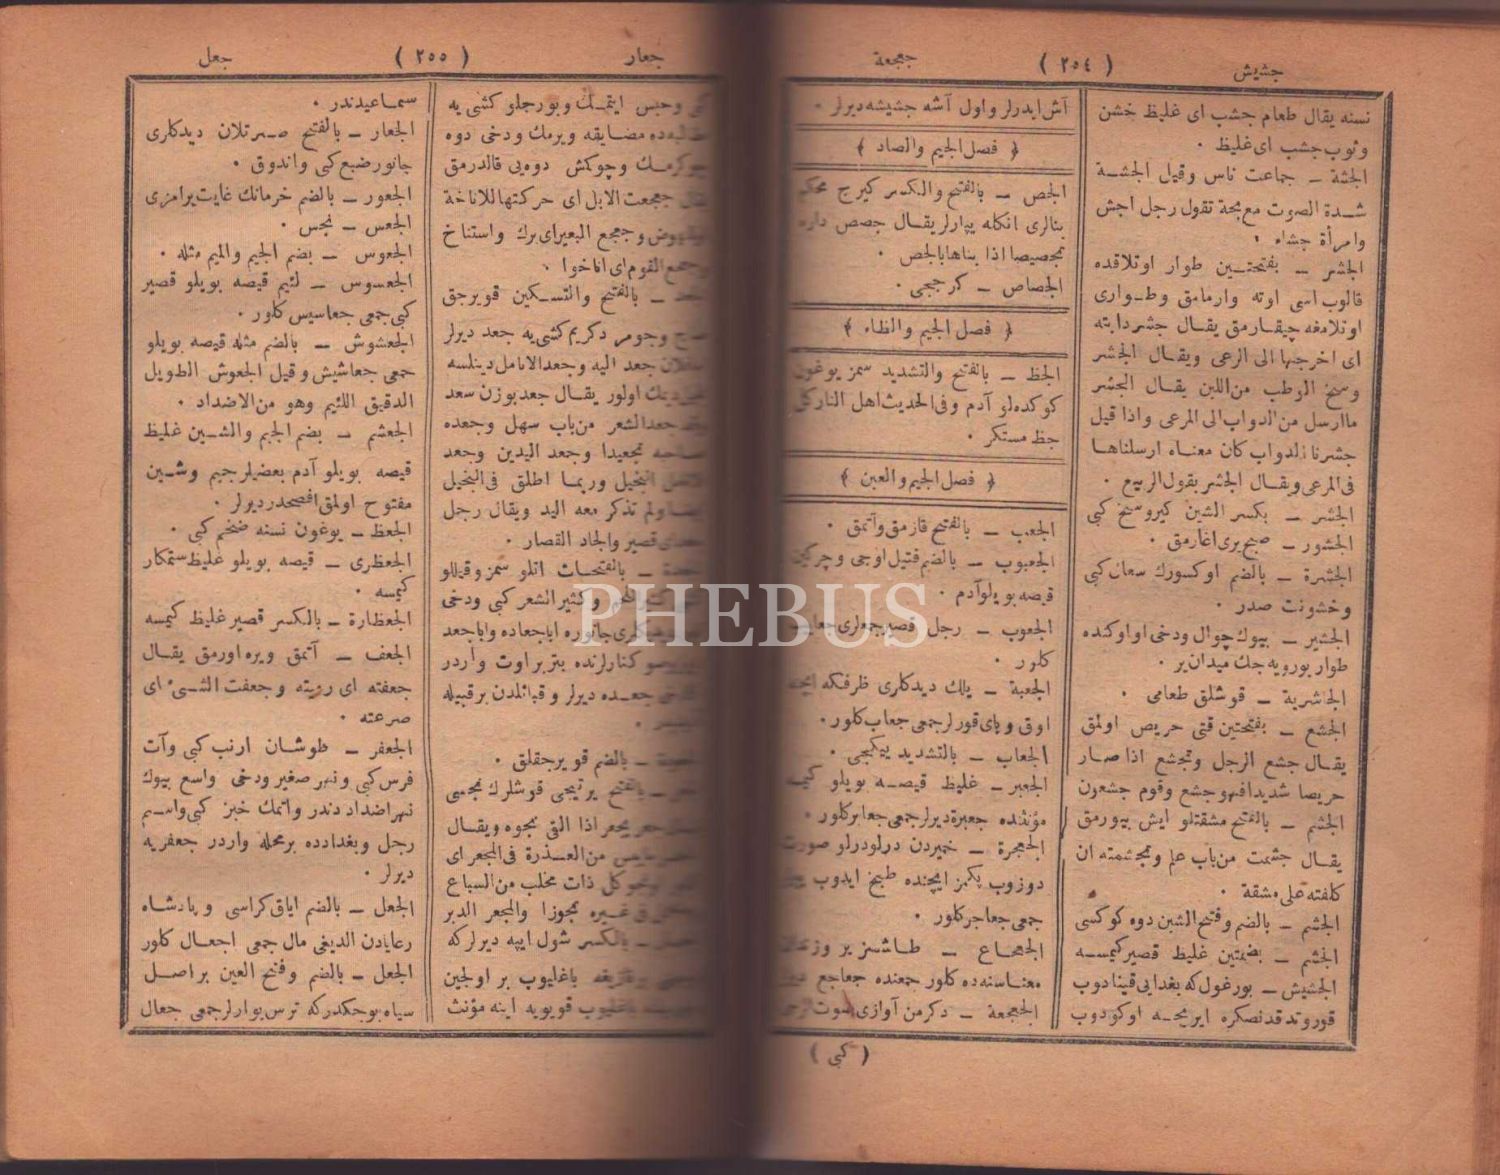 جشيش ( ٢٥٤ ) جعجعة
نسنه يقال طعام جشب اى غليظ خشن
وثوب جشب اى غليظ ٠
الجشة ــ جماعت ناس وقيل الجشــة
شــدة الصوت مع بحة تقول رجل اجش
وامرأة جشاء ٠
الجشر ــ بفتحتــين طوار اوتلاقده
قالوب اسى اوته وارمامق وطــوارى
اوتلامغه چيقارمق يقال جشر دابته
اى اخرجها الى الرعى ويقال الجشر
وسخ الوطب من اللبن يقال الجشر
ماارسل من الدواب الى المرعى واذا قيل
جشرنا الدواب كان معناه ارسلناها
فى المرعى ويقال الجشر بقول الربيع ٠
الجشر ــ بكسر الشين كيرو سنخ كبى
الجشور ــ صبح يرى اغارمق ٠
الجشرة ــ بالضم اوكسورك سعال كبى
وخشونت صدر ٠
الجشير ــ بيوك چوال ودخى اواوكنده
طوار يورويه جك ميدان ير ٠
الجاشرية ــ قوشلق طعامى ٠
الجشع ــ بفتحتين قتى حريص اولمق
يقــال جشع الرجل وتجشع اذا صــار
حريصا شديدا فهو جشع وقوم جشعون
الجشم ــ بالفتح مشقتلو ايش بيورمق
يقــال جشمت من باب علم وتجشمته ان
كلفته على مشقة ٠
الجشم ــ بالضم وفتح الشين دوه كوكسى
الجشم ــ بضمتين غليظ قصير كيمســه
الجشيش ــ بورغول كه بغدايى قينادوب
قوروتدقدنصكره ايريجــه اوكودوب
آش ايدرلر واول آشه جشيشه ديرلر ٠
﴿ فصل الجيم والصاد ﴾
الجص ــ بالفتح والكسر كيرج محكم
بنالرى انكله يپارلر يقــال جصص داره
تجصيصا اذا بناها بالجص ٠
الجصاص ــ كرججى ٠
﴿ فصل الجيم والظاء ﴾
الجظ ــ بالفتح والتشديد سمز يوغون
كوكده لو آدم وفى الحديث اهل النار كل
جظ مستكبر ٠
﴿ فصل الجيم والعين ﴾
الجعب ــ بالفتح قازمق وآتمق ٠
الجعبوب ــ بالضم فتيل اوجى وچركين
قيصه بويلو آدم ٠
الجعوب ــ رجل قصير جمعلرى
كلور ٠
الجعبة ــ يلك ديدكلرى ظرفكه ايچنه
اوق وياى قورلر جمعى جعاب كلور ٠
الجعاب ــ بالتشديد يپكجى ٠
الجعبر ــ غليظ قيصــه بويلو
مؤنثنده جعبرة ديرلر جمعى جعابر كلور ٠
الجعجرة ــ خميردن درلو درلو صورت
دوزوب پكمز ايچنده طبخ ايدوب
جمعى جعاجر كلور ٠
الجعجــاع ــ طــاشسز ير
معناسنه ده كلور جمعنده جعاجع
الجعجعة ــ دكرمن آوازى صوت الرحى
( كبى )
جعار ( ٢٥٥ ) جعل
كبى وحبس ايتمــك وبورجلو كشى يه
مضــايقه ويرمك ودخى دوه
چوكرمــك وچوكش دوه يى قالدرمق
يقال جعجعت الابل اى حركتها للاناخة
وجعجع البعير اى برك واستناخ
القوم اى اناخوا ٠
ــ بالفتح والتســكين قويرجق
وجومرد كريم كشى يه جعد ديرلر
جعد اليه وجعد الانامل دينلسه
ديمك اولور يقــال جعد بوزن سعد
جعد الشعر من باب سهل وجعده
صاحبه تجعيدا وجعد اليدين وجعد
البخيل وربمــا اطلق فى البخيل
ولم تذكر معه اليد ويقال رجل
قصير والجاد القصار ٠
ــ بالفتحــات اتلو سمز وقيللو
وكثير الشعر كبى ودخى
جانوره اباجعاده واباجعد
كنارلرنده بتر براوت واردر
جعــده ديرلر وقبائلدن برقبيله
ــ بالضم قويرجقلق ٠
ــ بالفتح يرتيجى قوشلرك نجمى
جعر يجعر اذا القى نجوه ويقــال
من العــذرة فى المجعر اى
كل ذات مخلب من السباع
غيره تجوزا والمجعر الدبر
ــ بالكسر شول ايپه ديرلر كه
باغليوب بر اوجلين
باغليوب قويويه اينه مؤنث
سمــاعيدندر ٠
الجعار ــ بالفتح صرتلان ديدكلرى
جانور ضبع كبى واندوق ٠
الجعور ــ بالضم خرمانك غايت يرامزى
الجعس ــ نجس ٠
الجعوس ــ بضم الجيم والميم مثله ٠
الجعسوس ــ لئيم قيصه بويلو قصير
كبى جمعى جعاسيس كلور ٠
الجعشوش ــ بالضم مثله قيصه بويلو
جمعى جعاشيش وقيل الجعوش الطويل
الدقيق اللئيم وهو من الاضداد ٠
الجعشم ــ بضم الجيم والشــين غليظ
قيصه بويلو آدم بعضيلر جيم وشــين
مفتوح اولمق افصحدر ديرلر ٠
الجعظ ــ يوغون نسنه ضخم كبى ٠
الجعظرى ــ قيصه بويلو غليظ ستمكار
كيمسه ٠
الجعظارة ــ بالكسر قصير غليظ كيمسه
الجعف ــ آتمق ويره اورمق يقــال
جعفته اى رميته وجعفت الشىء اى
صرعته ٠
الجعفر ــ طوشــان ارنب كبى وآت
فرس كبى ونهر صغير ودخى واسع بيوك
نهر اضداد دندر واتمك خبز كبى واســم
رجل وبغدادده برمحله واردر جعفريه
ديرلر ٠
الجعل ــ بالضم اياق كراسى وپادشاه
رعايادن الديغى مال جمعى اجعــال كلور
الجعل ــ بالضم وفتح العين براصــل
سياه بوجكدر كه ترس يوارلر جمعى جعال
PHEBUS